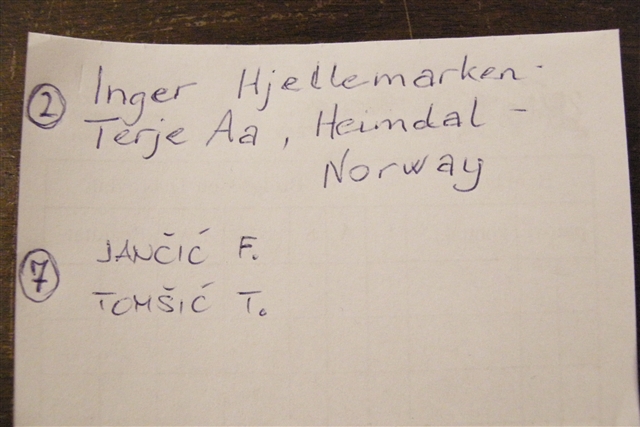 ② Inger Hjellemarken -
Terje Aa, Heimdal -
Norway
⑦ JANČIĆ F.
TOMŠIĆ T.